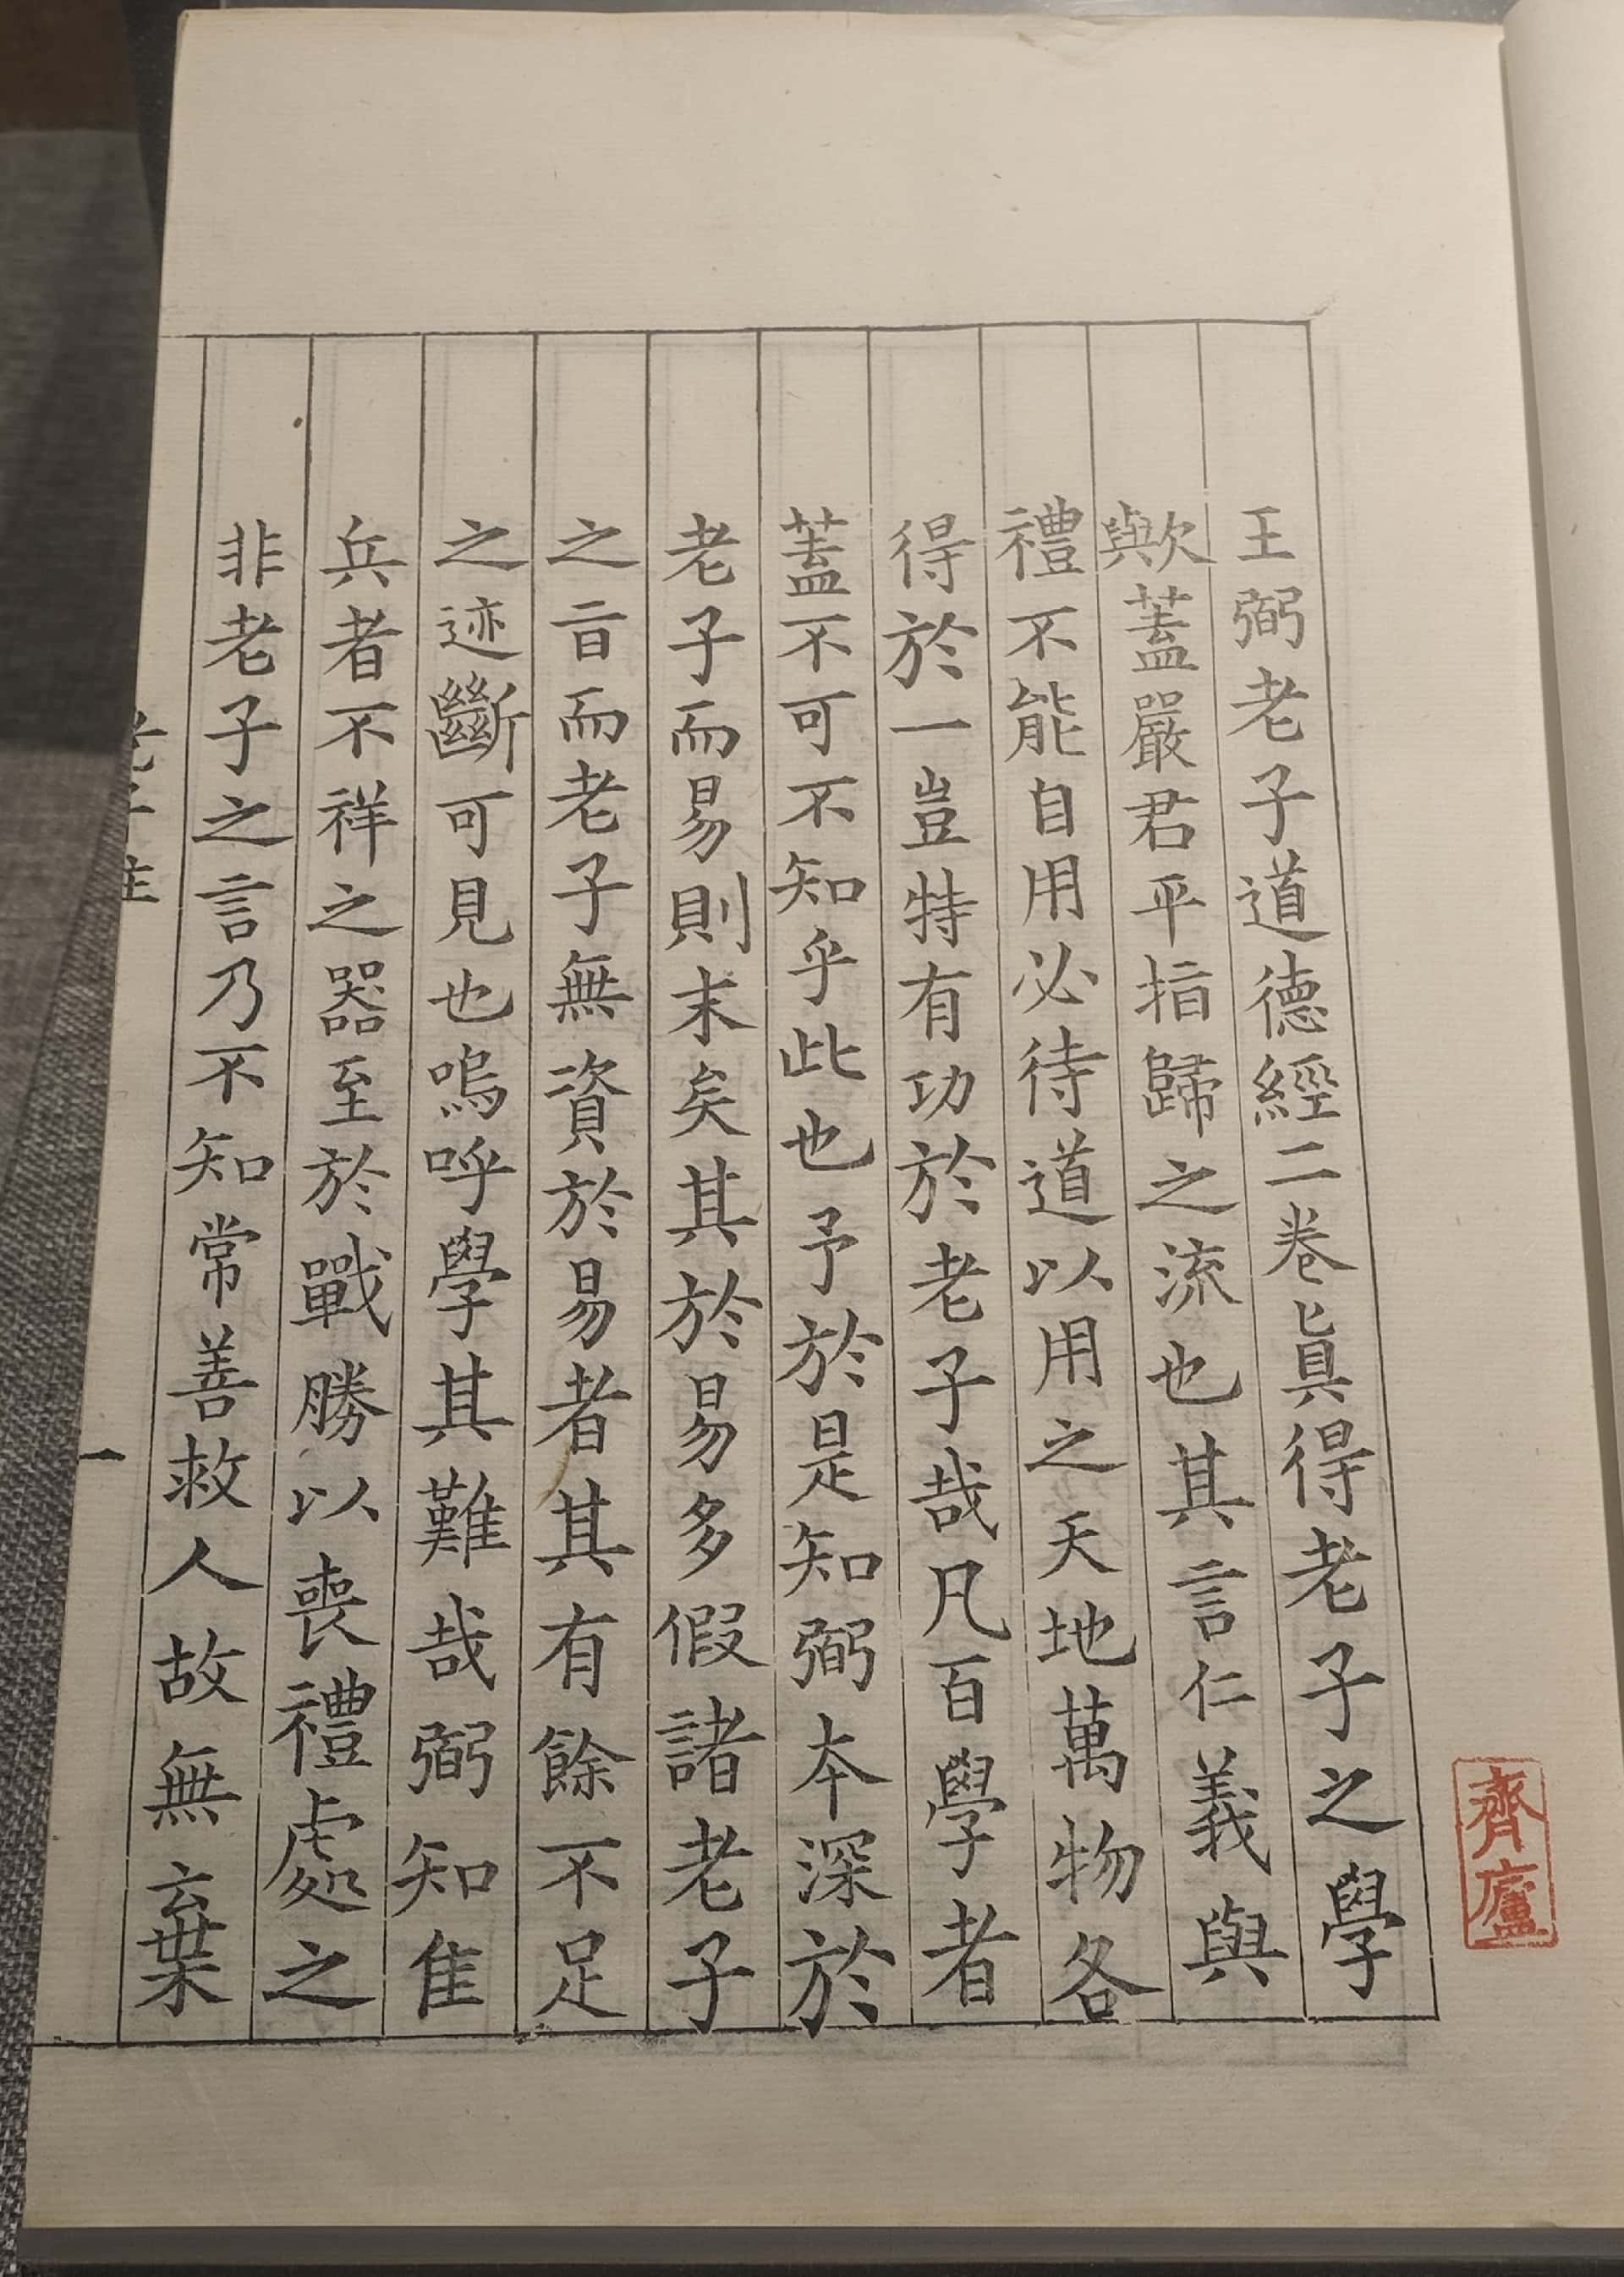 王弼老子道德經二卷眞得老子之學
歟蓋嚴君平指歸之流也其言仁義與
禮不能自用必待道以用之天地萬物各
得於一豈特有功於老子哉凡百學者
蓋不可不知乎此也予於是知弼本深於
老子而易則末矣其於易多假諸老子
之旨而老子無資於易者其有餘不足
之迹斷可見也嗚呼學其難哉弼知隹
兵者不祥之器至於戰勝以喪禮處之
非老子之言乃不知常善救人故無棄
老子注
一
齊廬